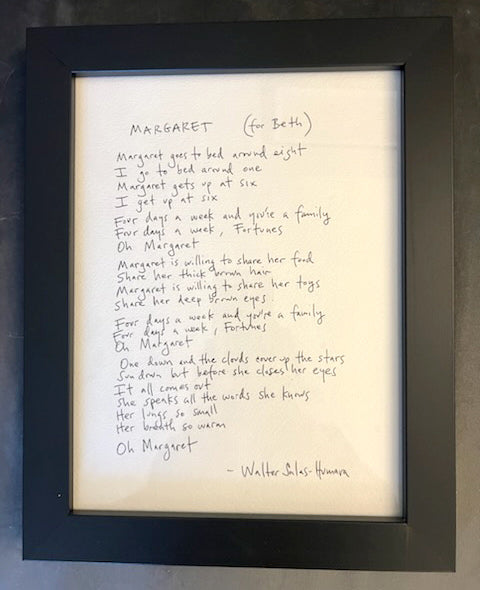 MARGARET (for Beth)
Margaret goes to bed around eight
I go to bed around one
Margaret gets up at six
I get up at six
Four days a week and you're a family
Four days a week, Fortunes
Oh Margaret
Margaret is willing to share her food
Share her thick brown hair
Margaret is willing to share her toys
Share her deep brown eyes.
Four days a week and you're a family
Four days a week, Fortunes
Oh Margaret
One down and the clouds cover up the stars
Sun down but before she closes her eyes
It all comes out
She speaks all the words she knows
Her lungs so small
Her breath so warm
Oh Margaret
- Walter Salas-Humara